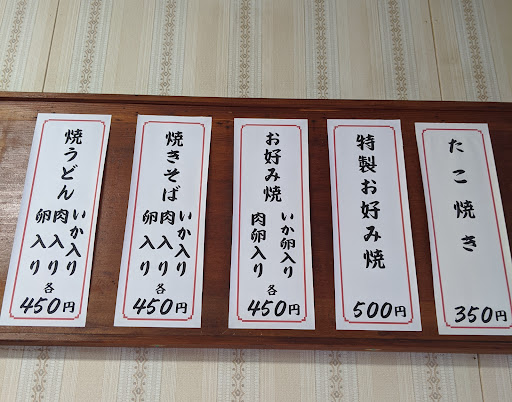 たこ焼き
350円
特製お好み焼
500円
お好み焼
いか卵入り
肉卵入り
各
450円
焼きそば
いか入り
肉入り
卵入り
各
450円
焼うどん
いか入り
肉入り
卵入り
各
450円